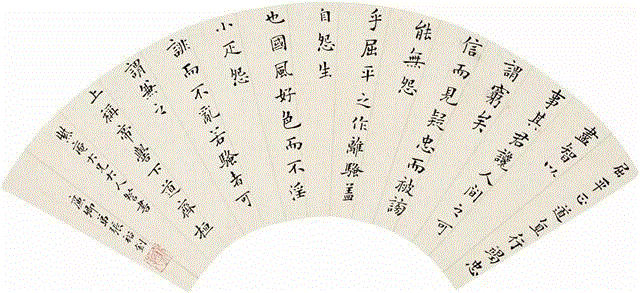 屈平正道直行竭忠
盡智以
事其君讒人間之可
謂窮矣
信而見疑忠而被謗
能無怨
乎屈平之作離騷蓋
自怨生
也國風好色而不淫
小疋怨
誹而不亂若騷者可
謂兼之
上稱帝嚳下道齊桓
大兄大人
廉卿弟張裕釗